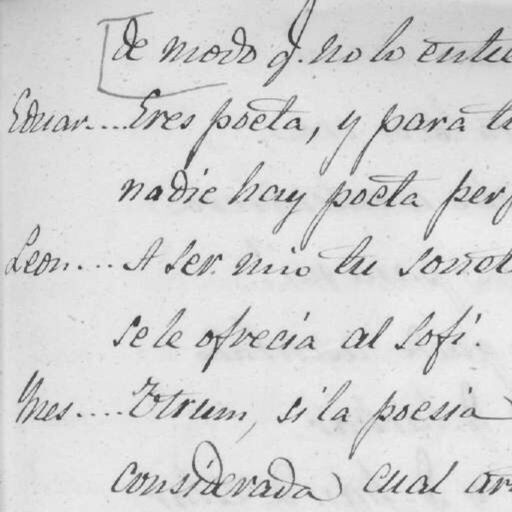 de modo q. no lo entie
Eduar.... Eres poeta, y para ti
nadie hay poeta perf
Leon.... A ser mio tu sonet
se le ofrecia al Sofí.
Ynes.... Utrum, si la poesia
considerada cual ar